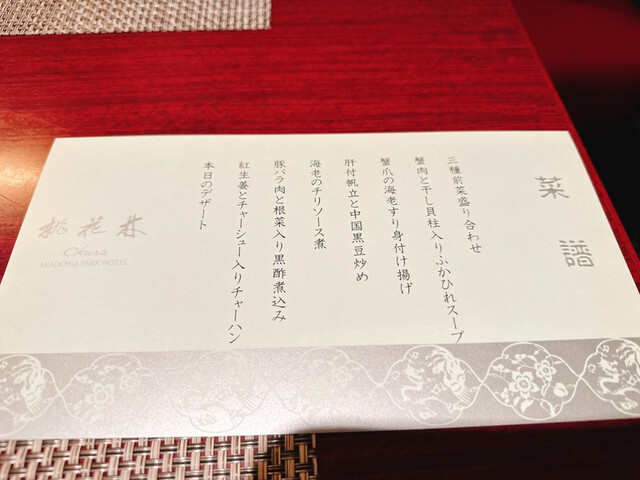 菜譜
三種前菜盛り合わせ
蟹肉と干し貝柱入りふかひれスープ
蟹爪の海老すり身付け揚げ
肝付帆立と中国黒豆炒め
海老のチリソース煮
豚バラ肉と根菜入り黒酢煮込み
紅生姜とチャーシュー入りチャーハン
本日のデザート
桃花林
Okura
AKADEMIA PARK HOTEL